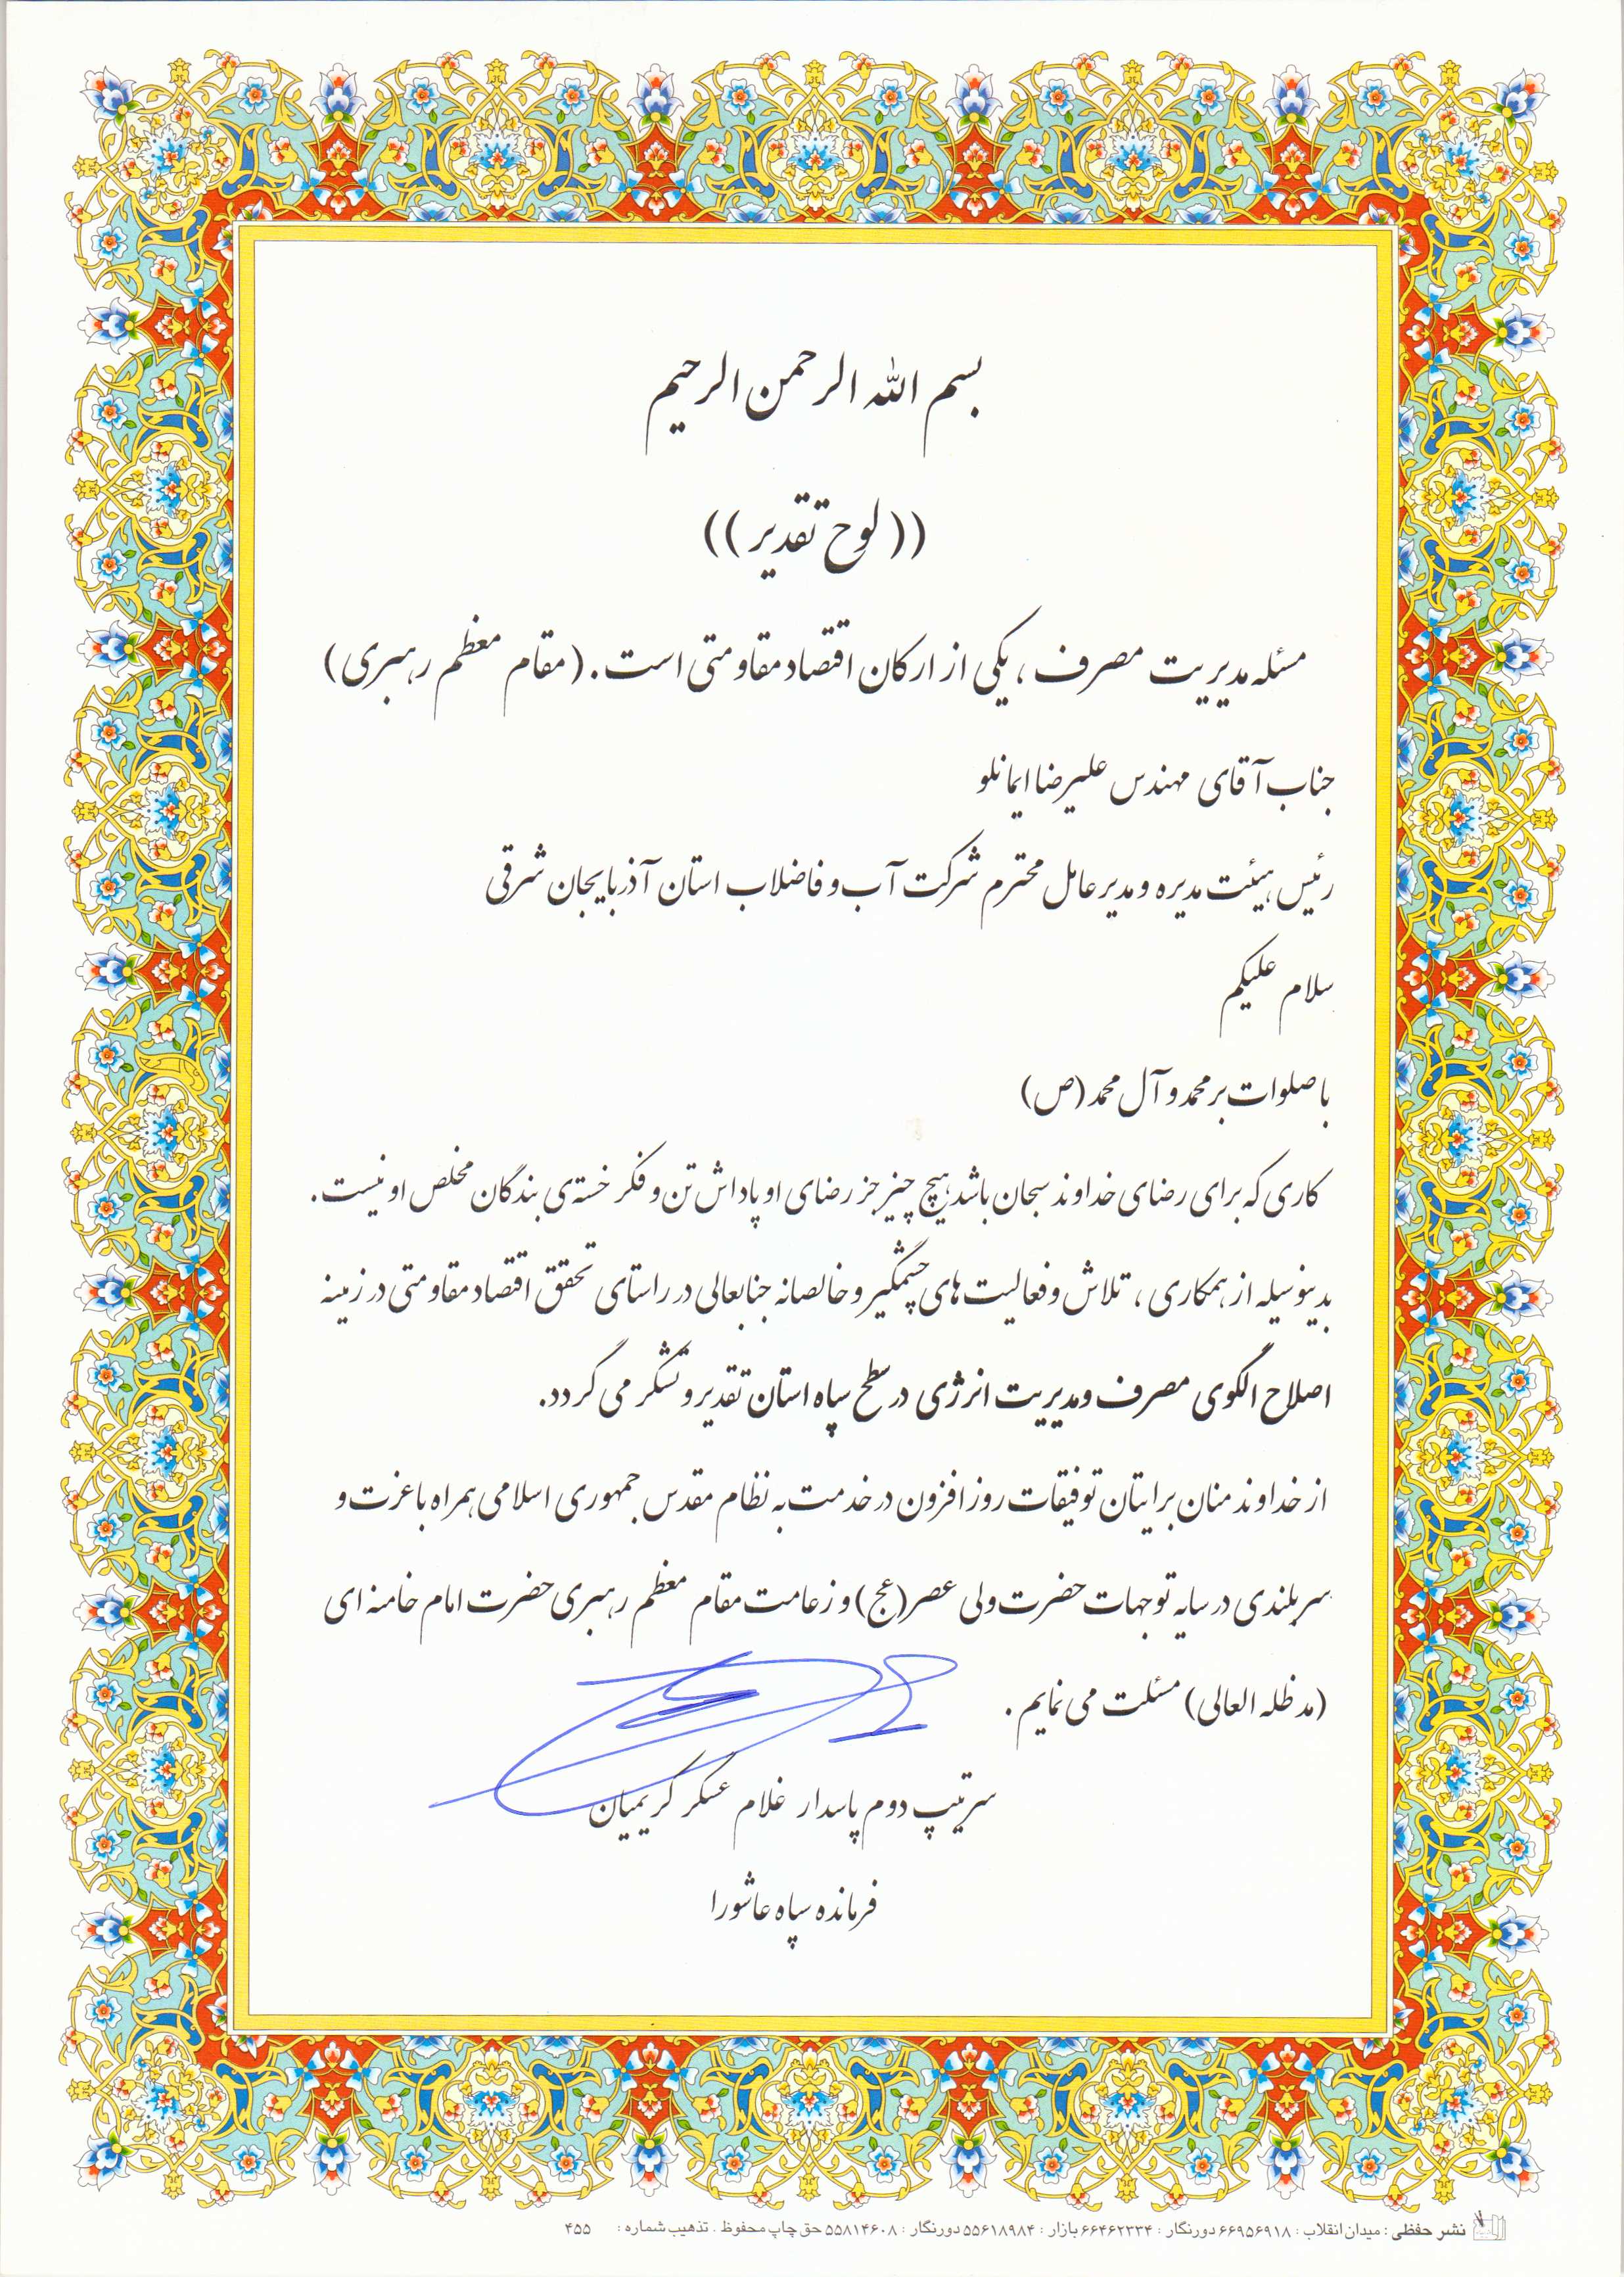 بسم الله الرحمن الرحیم
(( لوح تقدیر ))
مسئله مدیریت مصرف ، یکی از ارکان اقتصاد مقاومتی است . (مقام معظم رهبری)
جناب آقای مهندس علیرضا ایمانلو
رئیس هیئت مدیره و مدیرعامل محترم شرکت آب و فاضلاب استان آذربایجان شرقی
سلام علیکم
با صلوات بر محمد و آل محمد (ص)
کاری که برای رضای خداوند سبحان باشد هیچ چیز جز رضای او پاداش تن و فکر خسته ی بندگان مخلص او نیست .
بدینوسیله از همکاری ، تلاش و فعالیت های چشمگیر و خالصانه جنابعالی در راستای تحقق اقتصاد مقاومتی در زمینه
اصلاح الگوی مصرف و مدیریت انرژی در سطح سپاه استان تقدیر و تشکر می گردد.
از خداوند منان برایتان توفیقات روز افزون در خدمت به نظام مقدس جمهوری اسلامی همراه با عزت و
سربلندی در سایه توجهات حضرت ولی عصر (عج) و زعامت مقام معظم رهبری حضرت امام خامنه ای
(مد ظله العالی) مسئلت می نمایم .
سرتیپ دوم پاسدار غلام عسکر کریمیان
فرمانده سپاه عاشورا
نشر حفظی : میدان انقلاب : ۶۶۹۵۶۹۱۸ دورنگار : ۶۶۴۶۲۳۳۴ بازار : ۵۵۶۱۸۹۸۴ دورنگار : ۵۵۸۱۴۶۰۸ حق چاپ محفوظ . تذهیب شماره : ۴۵۵